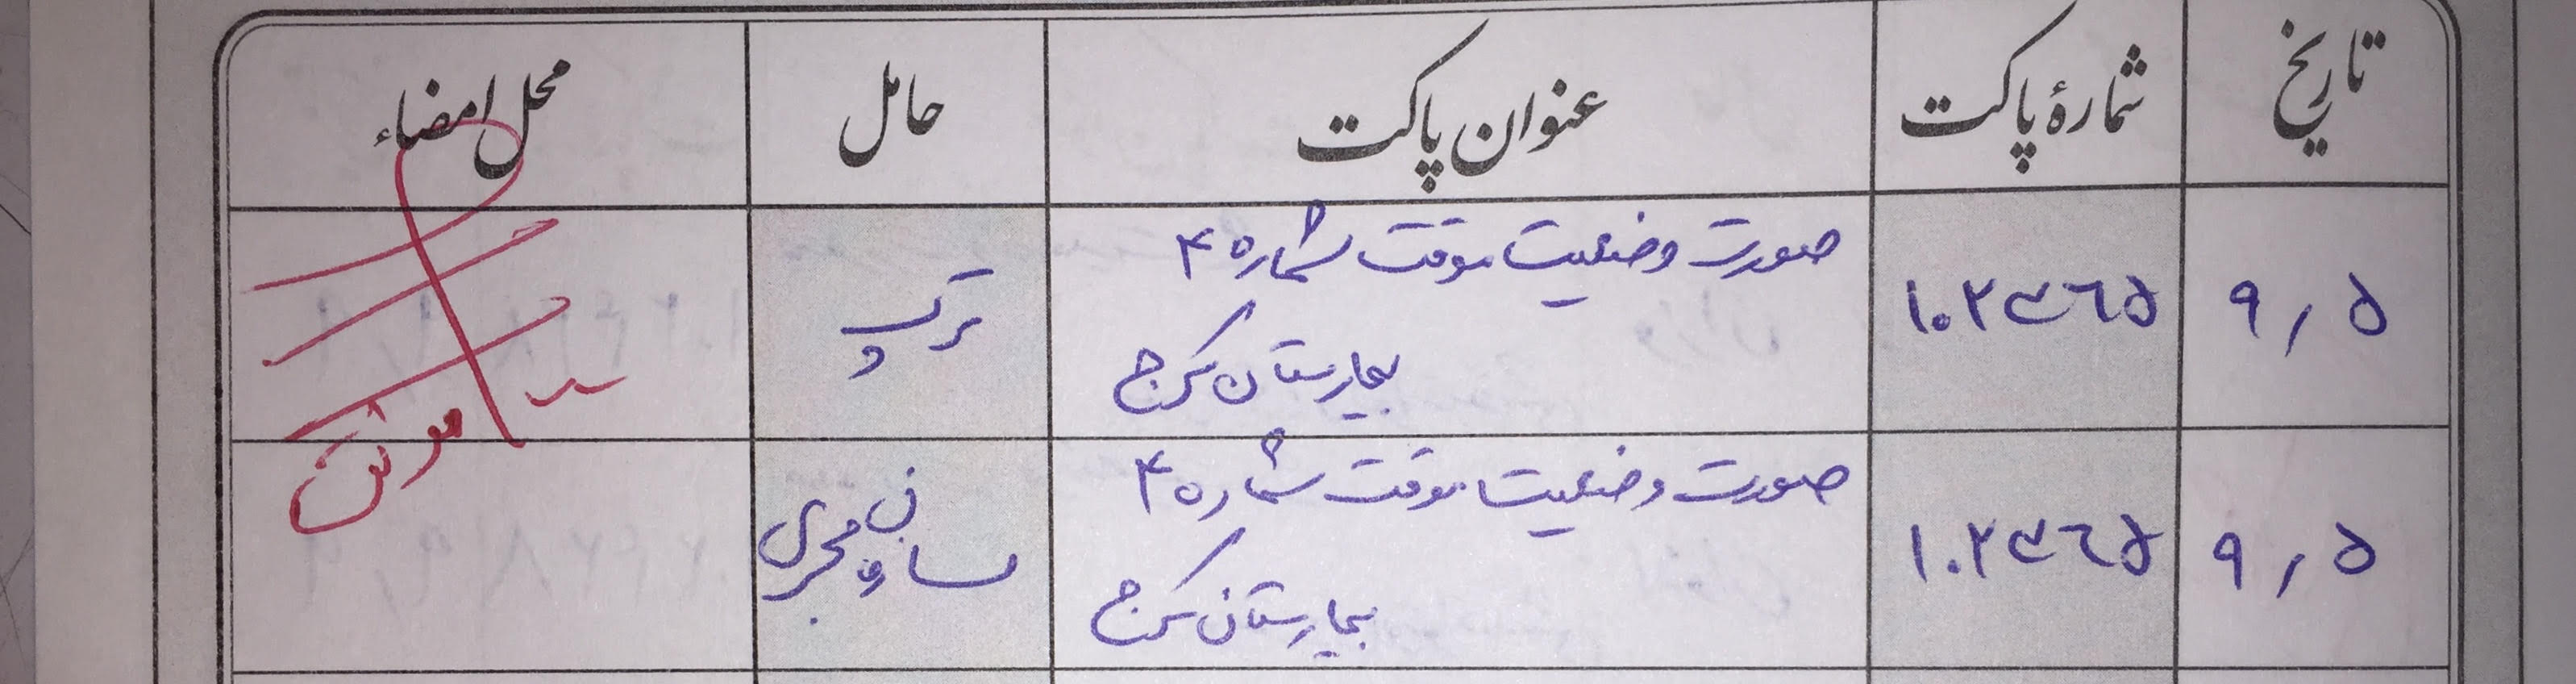 تاریخ شمارهٔ پاکت عنوان پاکت حامل محل امضاء
۹/۵ ۱۰۲۳۶۵ صورت وضعیت موقت شماره ۴
بیمارستان کرج
۹/۵ ۱۰۲۳۶۵ صورت وضعیت موقت شماره ۴
بیمارستان کرج